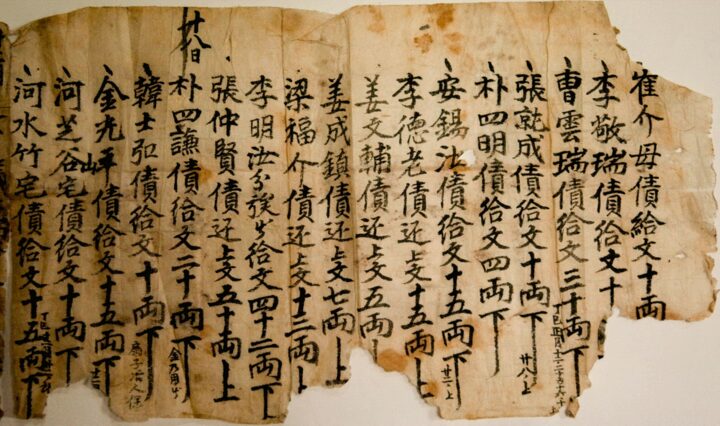 崔介母債給文十両
李敬瑞債給文十
曺雲瑞債給文三十両下
張就成債給文十両下
廿八上
朴四明債給文四両下
安錫汝債給文十五両下
廿二上
李德老債还上文十五両上
姜文輔債还上文五両
姜成鎮債还上文七両上
梁福介債还上文十三両上
李明汝給文四十二両下
張仲賢債还上文五十両上
廿八日
朴四謙債給文二十両下
韓士弘債給文十両下
金光平債給文十五両下
河芝山谷宅債給文十両下
河水竹宅債給文十五両下